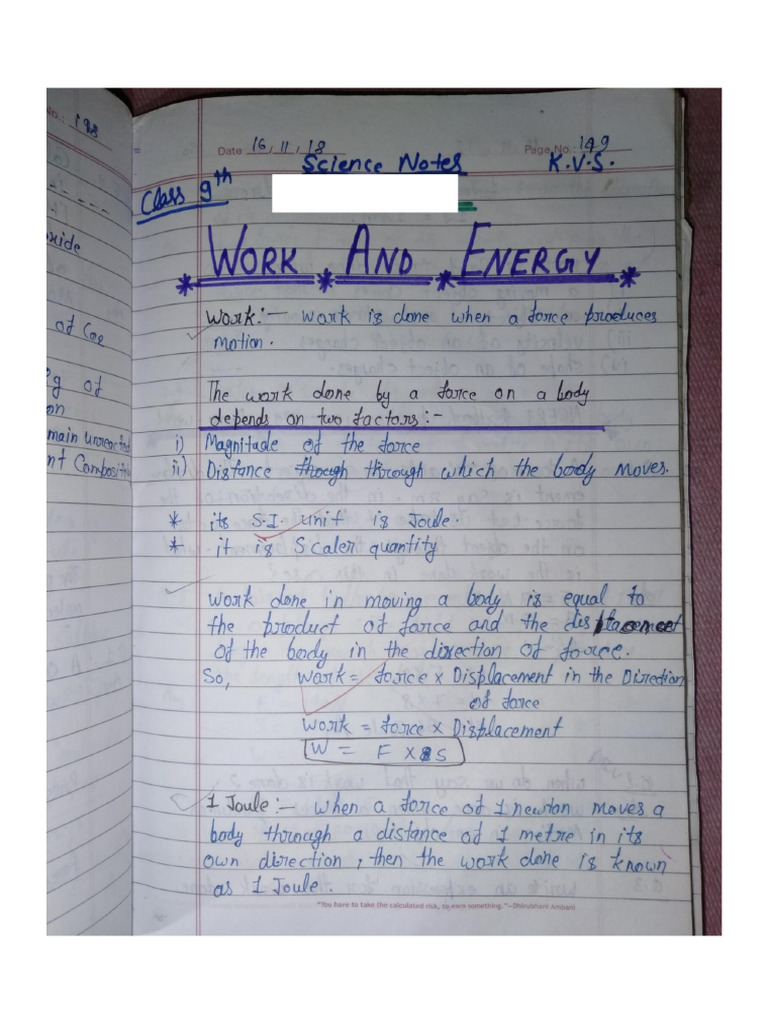 No.: 198
Date 16, 11, 18
Page No.: 149
Science Notes
K.V.S.
Class 9th
xide
of
g of
on
main unreacted
nt Composit
* WORK * AND * ENERGY *
Work:- Work is done when a force produces
motion.
The work done by a force on a body
depends on two factors:-
i) Magnitude of the force
ii) Distance though through which the body moves.
* its S.I. unit is Joule.
* it is Scaler quantity
Work done in moving a body is equal to
the product of force and the displacement
of the body in the direction of force.
So, Work = force × Displacement in the Direction
of force
Work = force × Displacement
W = F × S
1 Joule:- When a force of 1 newton moves a
body through a distance of 1 metre in its
own direction, then the work done is known
as 1 Joule.
"You have to take the calculated risk, to earn something."–Dhirubhani Ambani